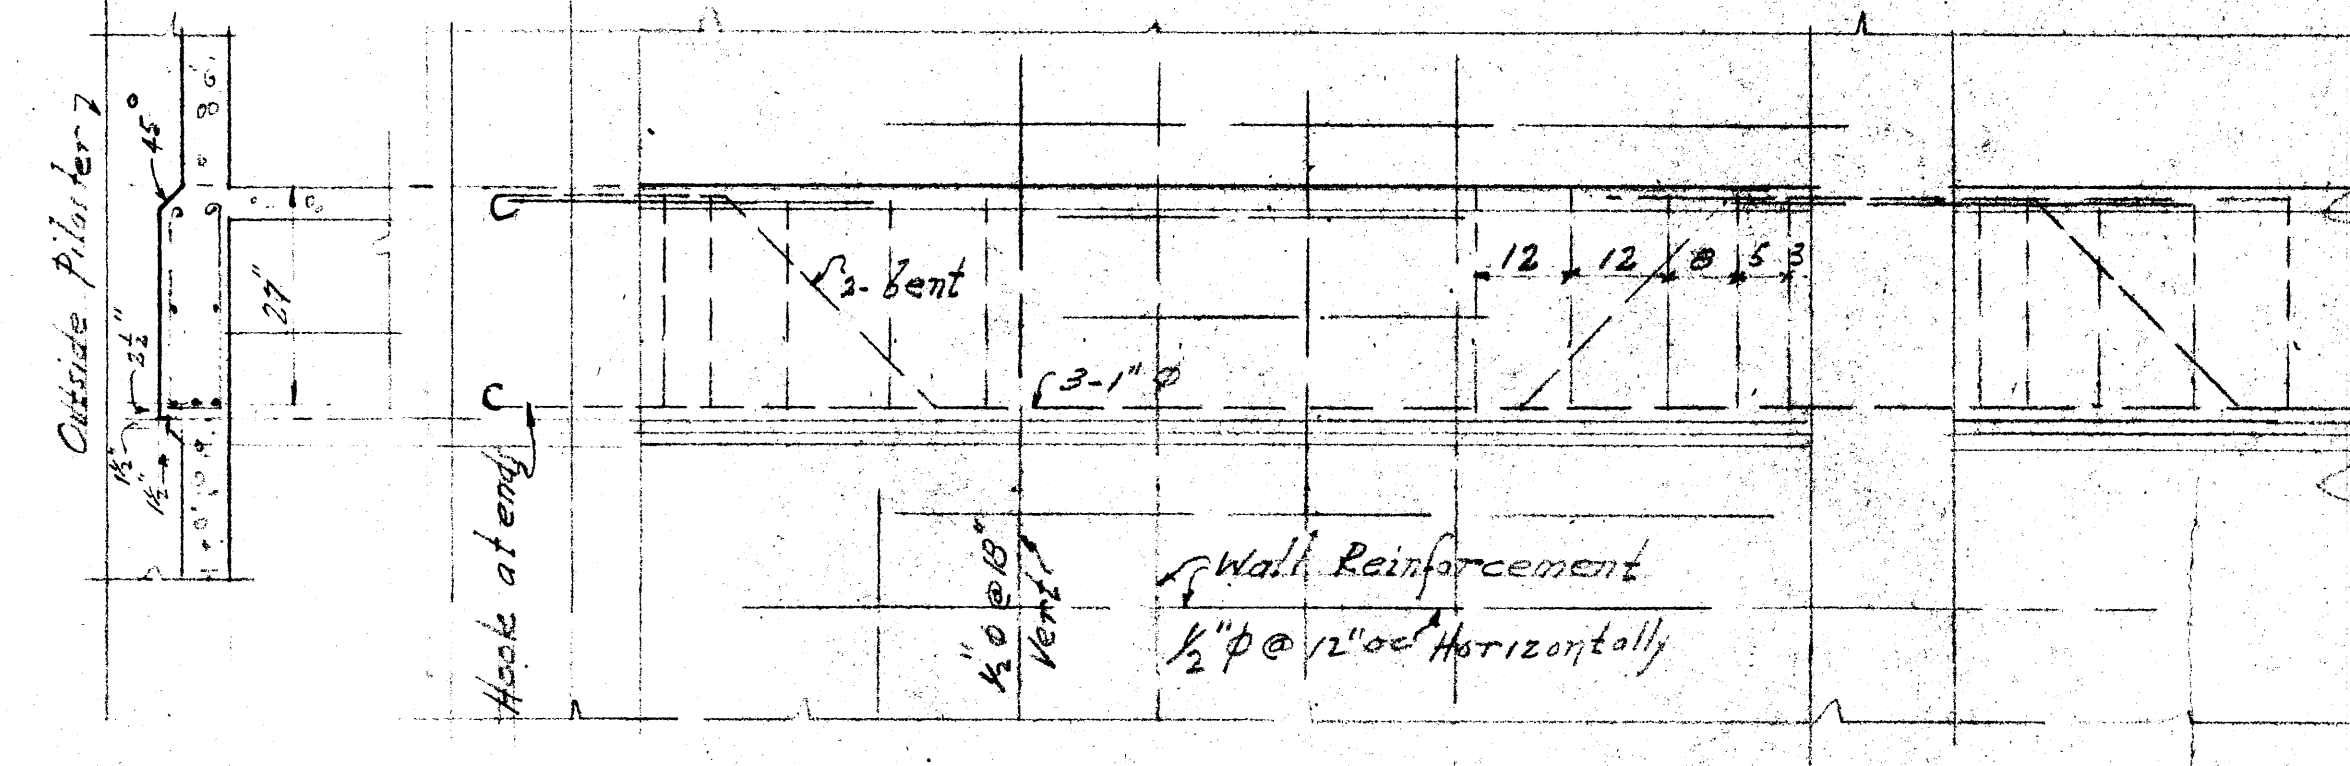 Outside Pilaster
45°
27"
2½"
1½"
1½"
Hook at end
2-bent
3-1" φ
12 12 8 5 3
½" φ @ 18"
Vert.
Wall Reinforcement
½" φ @ 12" oc Horizontally